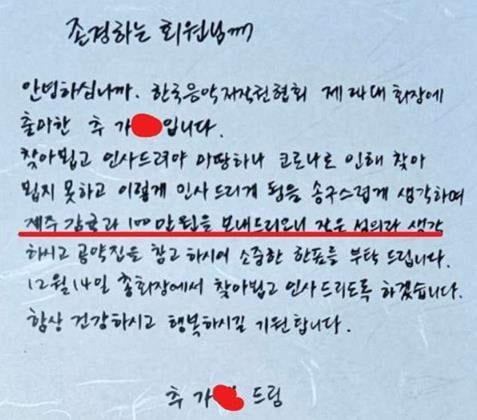 존경하는 회원님께
안녕하십니까. 한국음악저작권협회 제 24대 회장에
출마한 추 가 입니다.
찾아뵙고 인사드려야 마땅하나 코로나로 인해 찾아
뵙지 못하고 이렇게 인사 드리게 됨을 송구스럽게 생각하며
제주 감귤과 100만원을 보내드리오니 작은 성의라 생각
하시고 공약집을 참고 하시어 소중한 한표를 부탁 드립니다.
12월 14일 총회장에서 찾아뵙고 인사드리도록 하겠습니다.
항상 건강하시고 행복하시길 기원 합니다.
추 가 드림